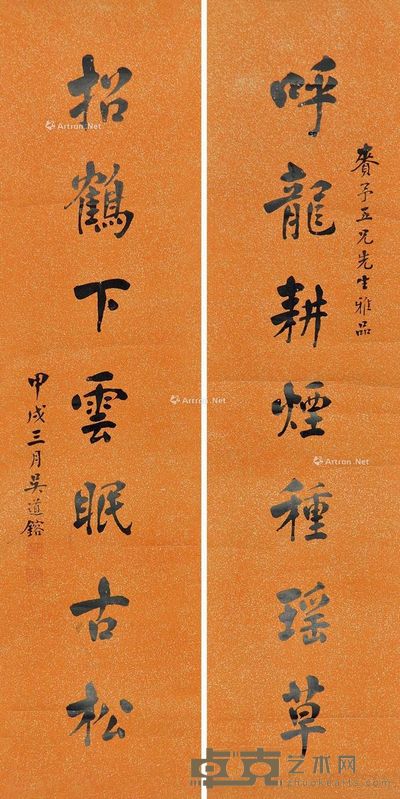 賚予五兄先生雅品
呼龍耕煙種瑶草
招鶴下雲眠古松
甲戌三月吳道鎔
Artron.Net
Artron.Net
Artron.Net
Artron.Net
卓克艺术网
zhuokearts.com